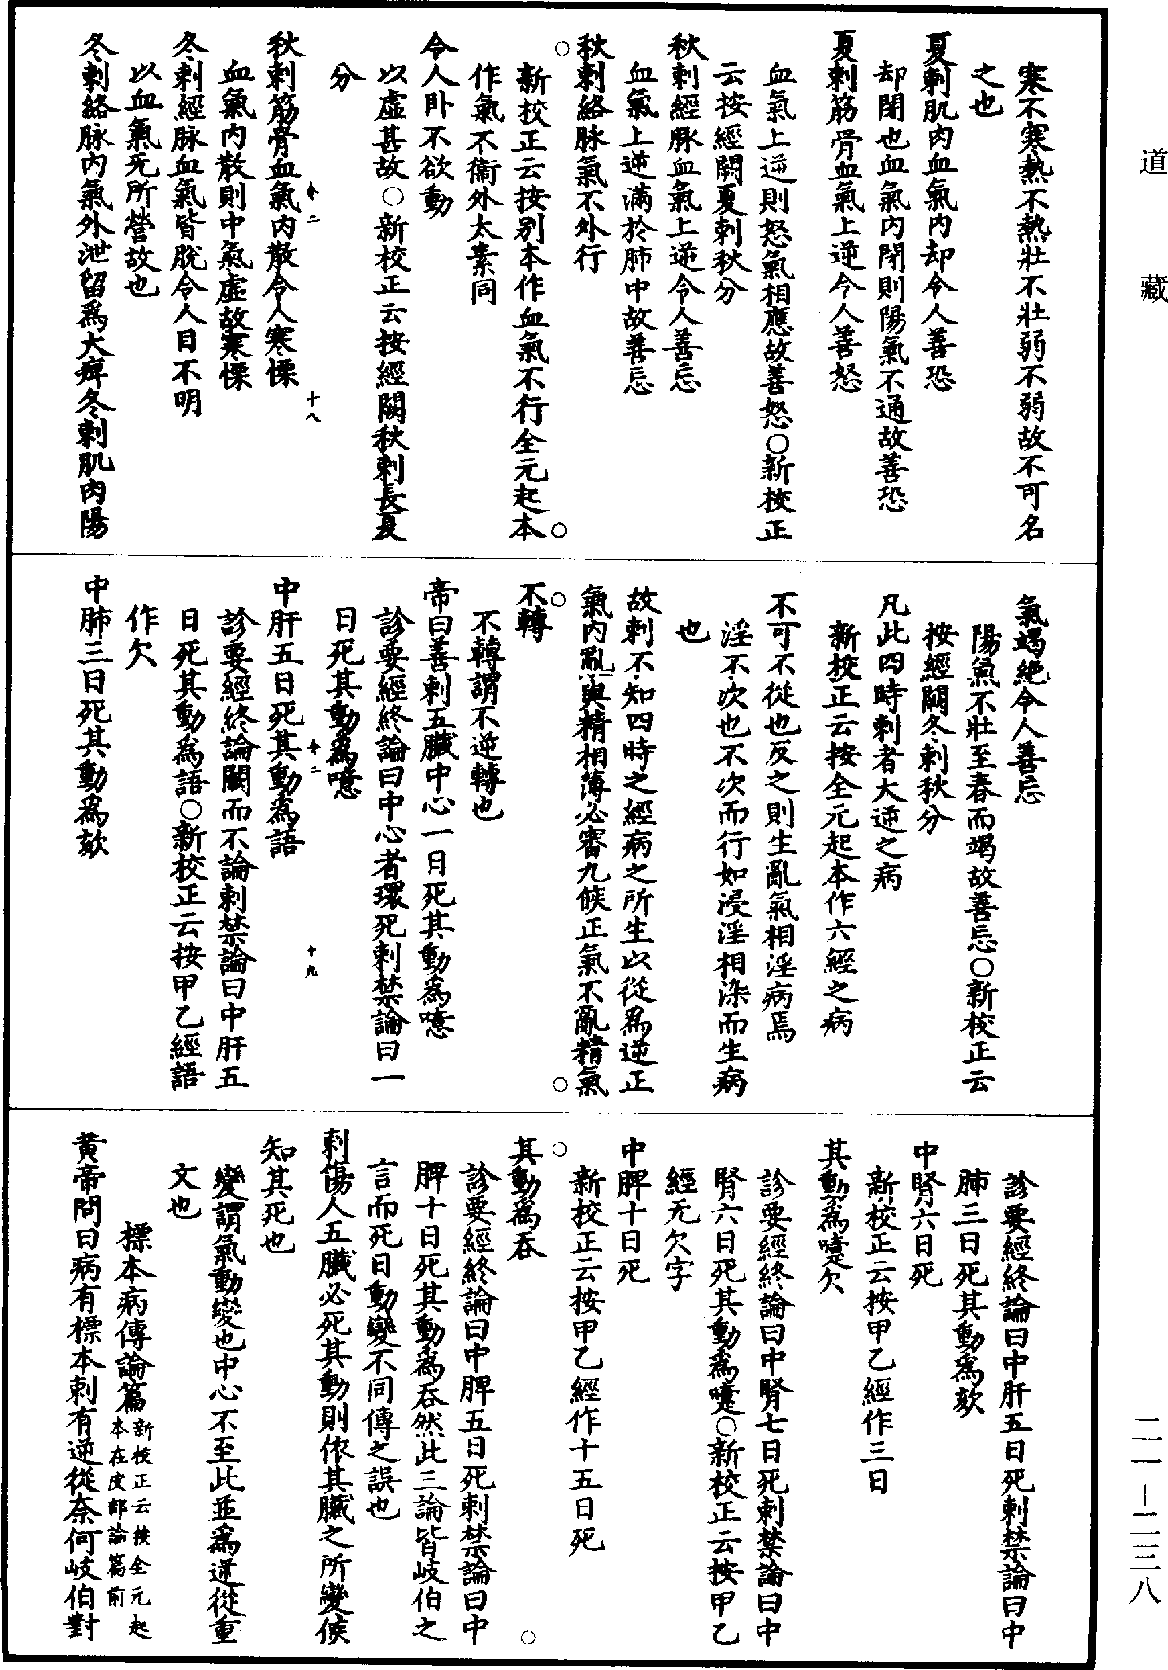 道藏
寒不寒熱不熱壯不壯弱不弱故不可名
之也
夏刺肌肉血氣內却令人善恐
却閉也血氣內閉則陽氣不通故善恐
夏刺筋骨血氣上逆令人善怒
血氣上逆則怒氣相應故善怒○新校正
云按經闕夏刺秋分
秋刺經脉血氣上逆令人善忘
血氣上逆滿於肺中故善忘
秋刺絡脉氣不外行
新校正云按別本作血氣不行全元起本
作氣不衞外太素同
令人卧不欲動
以虛甚故○新校正云按經闕秋刺長夏
分
秋刺筋骨血氣內散令人寒慄
血氣內散則中氣虛故寒慄
冬刺經脉血氣皆脫令人目不明
以血氣无所營故也
冬刺絡脉內氣外泄留爲大痺冬刺肌肉陽
氣竭絕令人善忘
陽氣不壯至春而竭故善忘○新校正云
按經闕冬刺秋分
凡此四時刺者大逆之病
新校正云按全元起本作六經之病
不可不從也反之則生亂氣相淫病焉
淫不次也不次而行如浸淫相染而生病
也
故刺不知四時之經病之所生以從爲逆正
氣內亂與精相薄必審九候正氣不亂精氣
不轉
不轉謂不逆轉也
帝曰善刺五臟中心一日死其動爲噫
診要經終論曰中心者環死刺禁論曰一
日死其動爲噫
中肝五日死其動爲語
診要經終論闕而不論刺禁論曰中肝五
日死其動爲語○新校正云按甲乙經語
作欠
中肺三日死其動爲欬
診要經終論曰中肝五日死刺禁論曰中
肺三日死其動爲欬
中腎六日死
新校正云按甲乙經作三日
其動爲嚏欠
診要經終論曰中腎七日死刺禁論曰中
腎六日死其動爲嚏○新校正云按甲乙
經无欠字
中脾十日死
新校正云按甲乙經作十五日死
其動爲吞
診要經終論曰中脾五日死刺禁論曰中
脾十日死其動爲吞然此三論皆岐伯之
言而死日動變不同傳之誤也
刺傷人五臟必死其動則依其臟之所變候
知其死也
變謂氣動變也中心不至此並爲逆從重
文也
標本病傳論篇 新校正云按全元起
本在皮部論篇前
黃帝問曰病有標本刺有逆從奈何岐伯對
二一—二三八